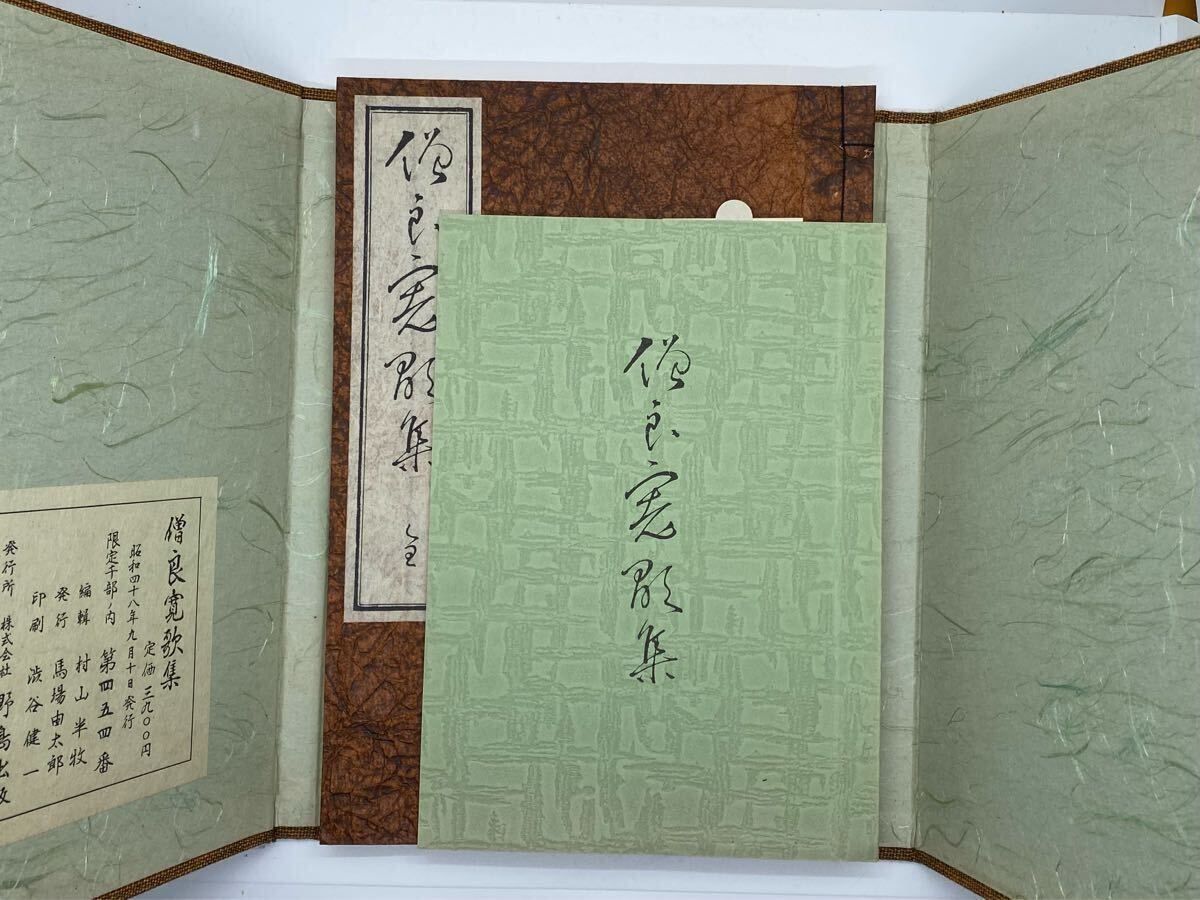 僧良寛歌集
全
僧良寛歌集
僧良寛歌集
定価 三九〇〇円
昭和四十八年九月十日発行
限定千部ノ内 第四五四番
編輯 村山半牧
発行 馬場由太郎
印刷 渋谷健一
発行所 株式会社 野島出版